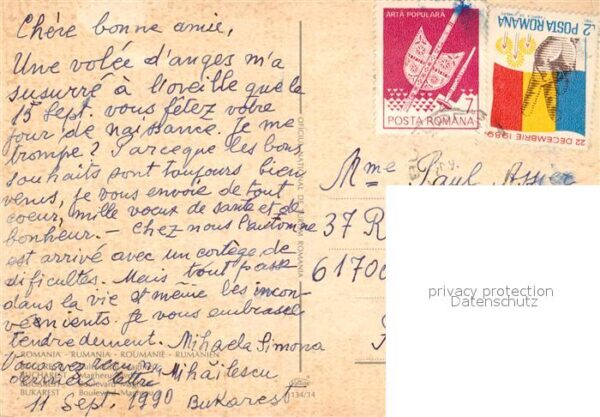 Chère bonne amie,
Une volée d'anges m'a
susurré à l'oreille que le
15 Sept. vous fêtez votre
jour de naissance. Je me
trompe? Parceque les bons
souhaits sont toujours bien
venus, je vous envoie de tout
coeur, mille voeux de santé et de
bonheur. — Chez nous l'automne
est arrivé avec un cortège de
difficultés. Mais tout passe
dans la vie et même les incon-
vénients. Je vous embrasse
tendrement. Mihaela Simona
Mihăilescu
Vous avez reçu ma
dernière lettre
11 Sept. 1990 Bukarest
ROMANIA - RUMANIA - ROUMANIE - RUMÄNIEN
Magheru
BUKAREST Boulevard
134/14
ARTĂ POPULARĂ
7
POSTA ROMÂNA
2 POSTA ROMANA
22 DECEMBRIE 1989
Mme Paul
37 R
6170
privacy protection
Datenschutz